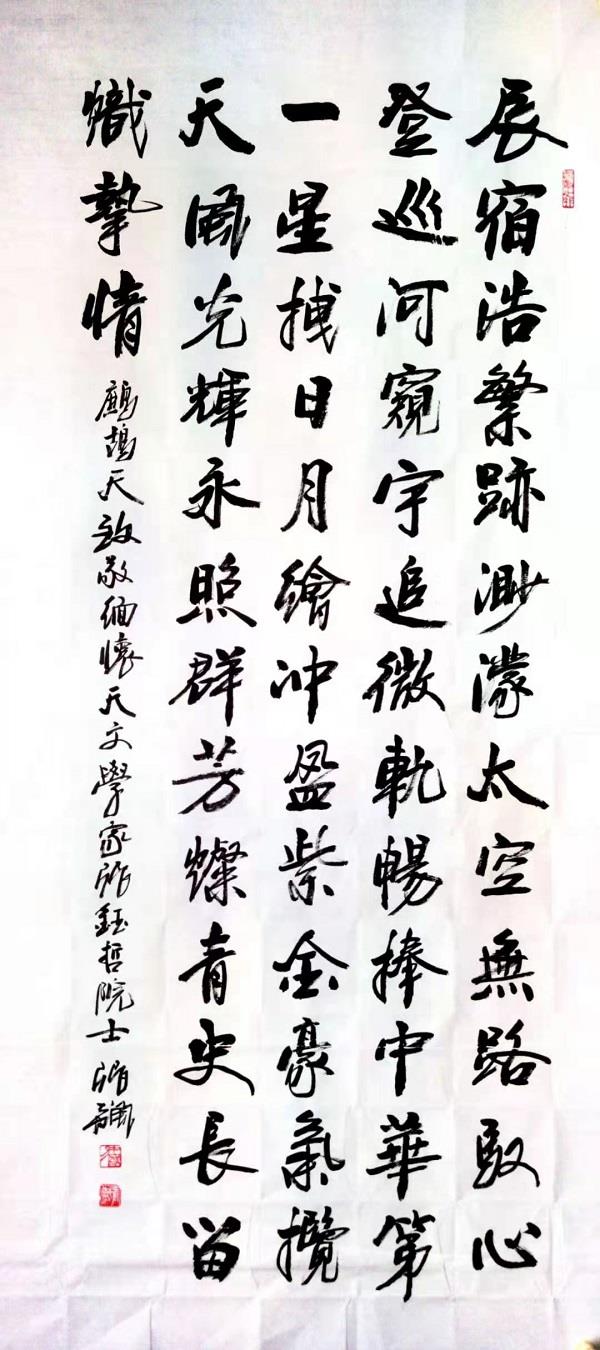 辰宿浩繁跡渺濛太空無路馭心
登巡河窺宇追微軌暢捧中華第
一星摶日月繪沖盈紫金豪氣攬
天風光輝永照群芳燦青史長留
熾摯情
鷓鴣天致敬緬懷天文學家張鈺哲院士